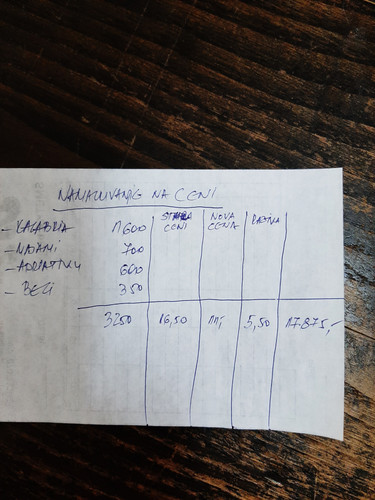 NAMALUVANJE NA CENI
STARA CENI NOVA CENA RAZLIKA
- KALABRIA 1600
- MAJAMI 700
- ADRIATIK 600
- BEZI 350
3250 16,50 11, 5,50 17.875,-